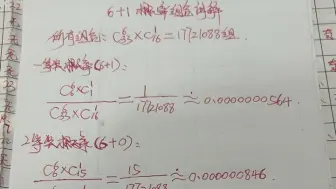 6+1概率组合讲解
所有组合: C₃₃⁶×C₁₆¹=17721088组.
一等奖概率(6+1):
C₆⁶×C₁¹ / C₃₃⁶×C₁₆¹ = 1 / 17721088 ≈ 0.0000000564.
2等奖概率(6+0):
C₆⁶×C₁₅¹ / = 15 / 17721088 ≈ 0.000000846.